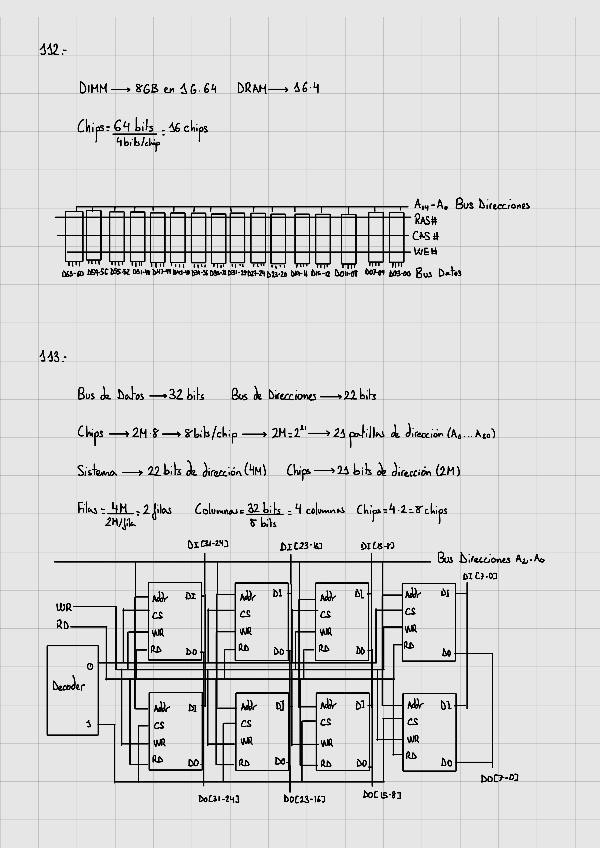 112.-
DIMM → 8GB en 1G·64 DRAM → 1G·4
Chips = 64 bits / 4 bits/chip = 16 chips
A₁₄-A₀ Bus Direcciones
RAS#
CAS#
WE#
D63-60 D59-56 D55-52 D51-48 D47-44 D43-40 D39-36 D35-32 D31-28 D27-24 D23-20 D19-16 D15-12 D11-08 D07-04 D03-00 Bus Datos
113.-
Bus de Datos → 32 bits Bus de Direcciones → 22 bits
Chips → 2M·8 → 8 bits/chip → 2M = 2²¹ → 21 patillas de dirección (A₀...A₂₀)
Sistema → 22 bits de dirección (4M) Chips → 21 bits de dirección (2M)
Filas = 4M / 2M/fila = 2 filas Columnas = 32 bits / 8 bits = 4 columnas Chips = 4·2 = 8 chips
DI[31-24] DI[23-16] DI[15-8]
Bus Direcciones A₂₁-A₀
DI[7-0]
Addr DI Addr DI Addr DI Addr DI
WR CS CS CS CS
RD WR WR WR WR
RD DO RD DO RD DO RD DO
0
Decoder
1
Addr DI Addr DI Addr DI Addr DI
CS CS CS CS
WR WR WR WR
RD DO RD DO RD DO RD DO
DO[7-0]
DO[31-24] DO[23-16] DO[15-8]